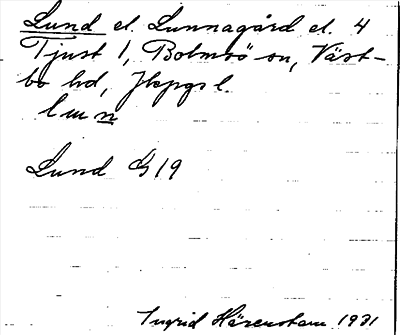 Lund el. Lunnagård el. 4
Tjust 1, Bolmsö sn, Väst-
bo hd, Jkpgs l.
lun
Lund G 19
Ingrid Härenstam 1931